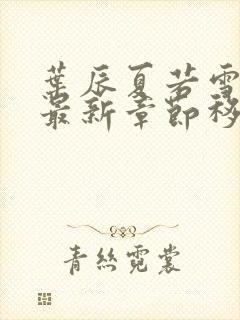 葉辰夏若雪
最新章節移
青絲霓裳